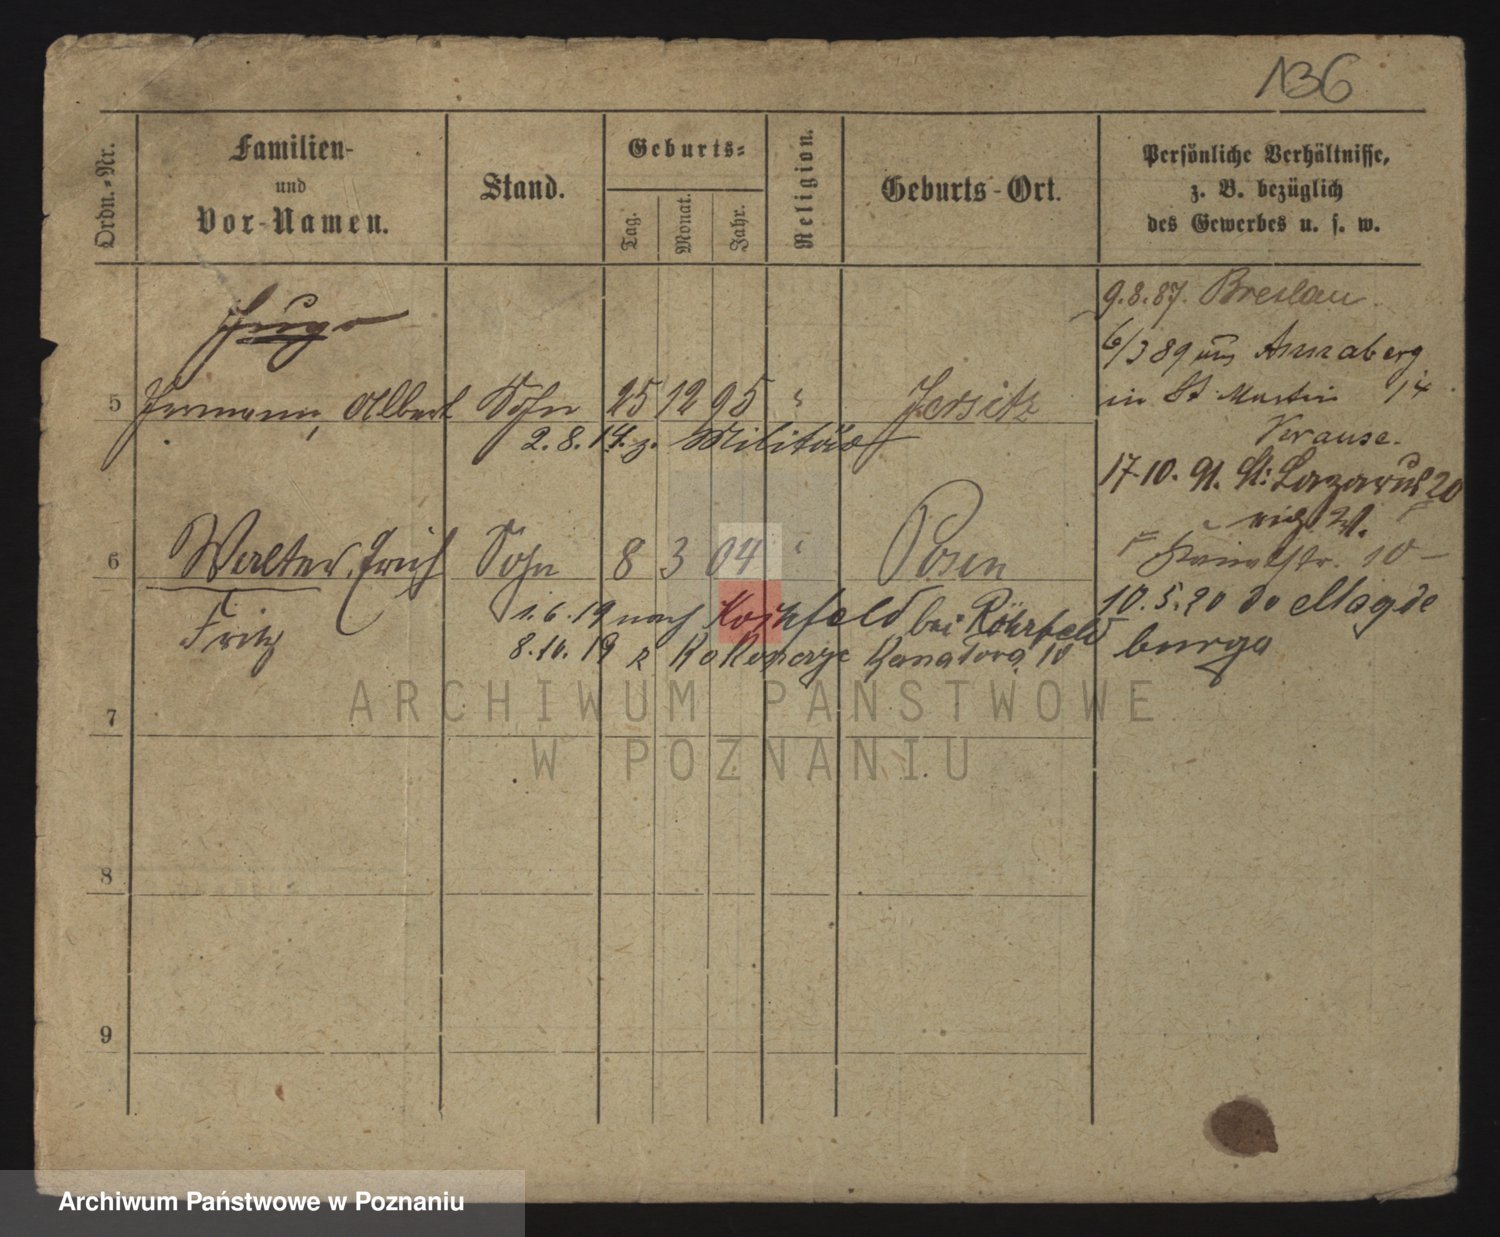 136
Ordn.-Nr.
Familien-
und
Vor-Namen.
Stand.
Geburts-
Tag.
Monat.
Jahr.
Religion.
Geburts-Ort.
Persönliche Verhältnisse,
z. B. bezüglich
des Gewerbes u. s. w.
Hugo
5 Hermann, Albert Sohn 25 12 95 " Jersitz
2.8.14. z. Militär
6 Walter, Erich Sohn 8 3 04 " Posen
Fritz
1.6.19 nach feld bei Röhrfeld
8.10.19 z Kokoncze 10
7
8
9
9.8.87. Breslau.
6/3 89 aus Annaberg
in St. Martin 14
Kerause.
17.10. 91. St: Lazarus 20
10
10.5.20 do Magde
burga
ARCHIWUM PAŃSTWOWE
W POZNANIU
Archiwum Państwowe w Poznaniu